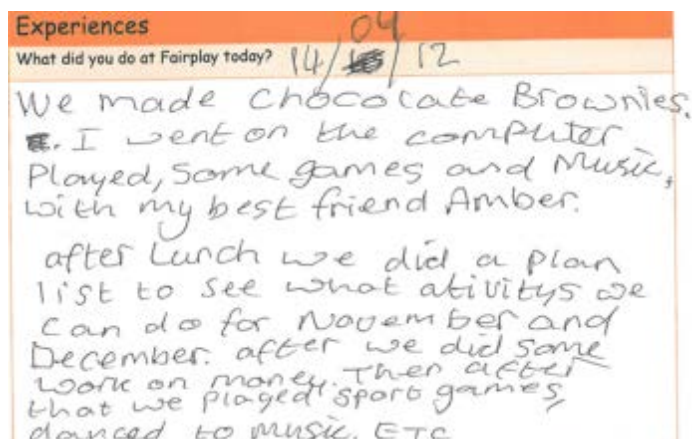 Experiences
What did you do at Fairplay today? 14/04/12
We made Chococate Brownies.
. I went on the computer
Played, Some games and Music,
with my best friend Amber.
after Lunch we did a plan
list to see what ativitys we
can do for November and
December. after we did some
work on money. Then after
that we played sport games,
danced to music. ETC